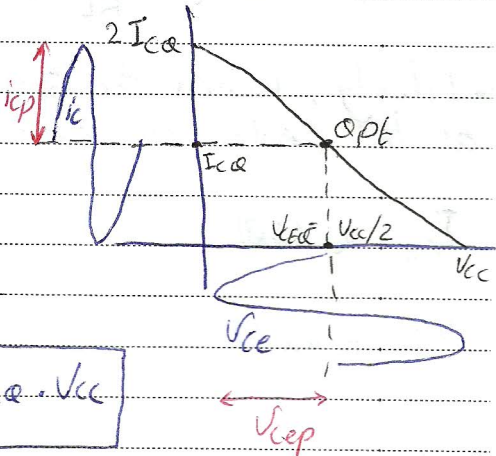 2 ICQ
icp
ic
Qpt
ICQ
VCEQ = VCC/2
VCC
Vce
Q . VCC
Vcep